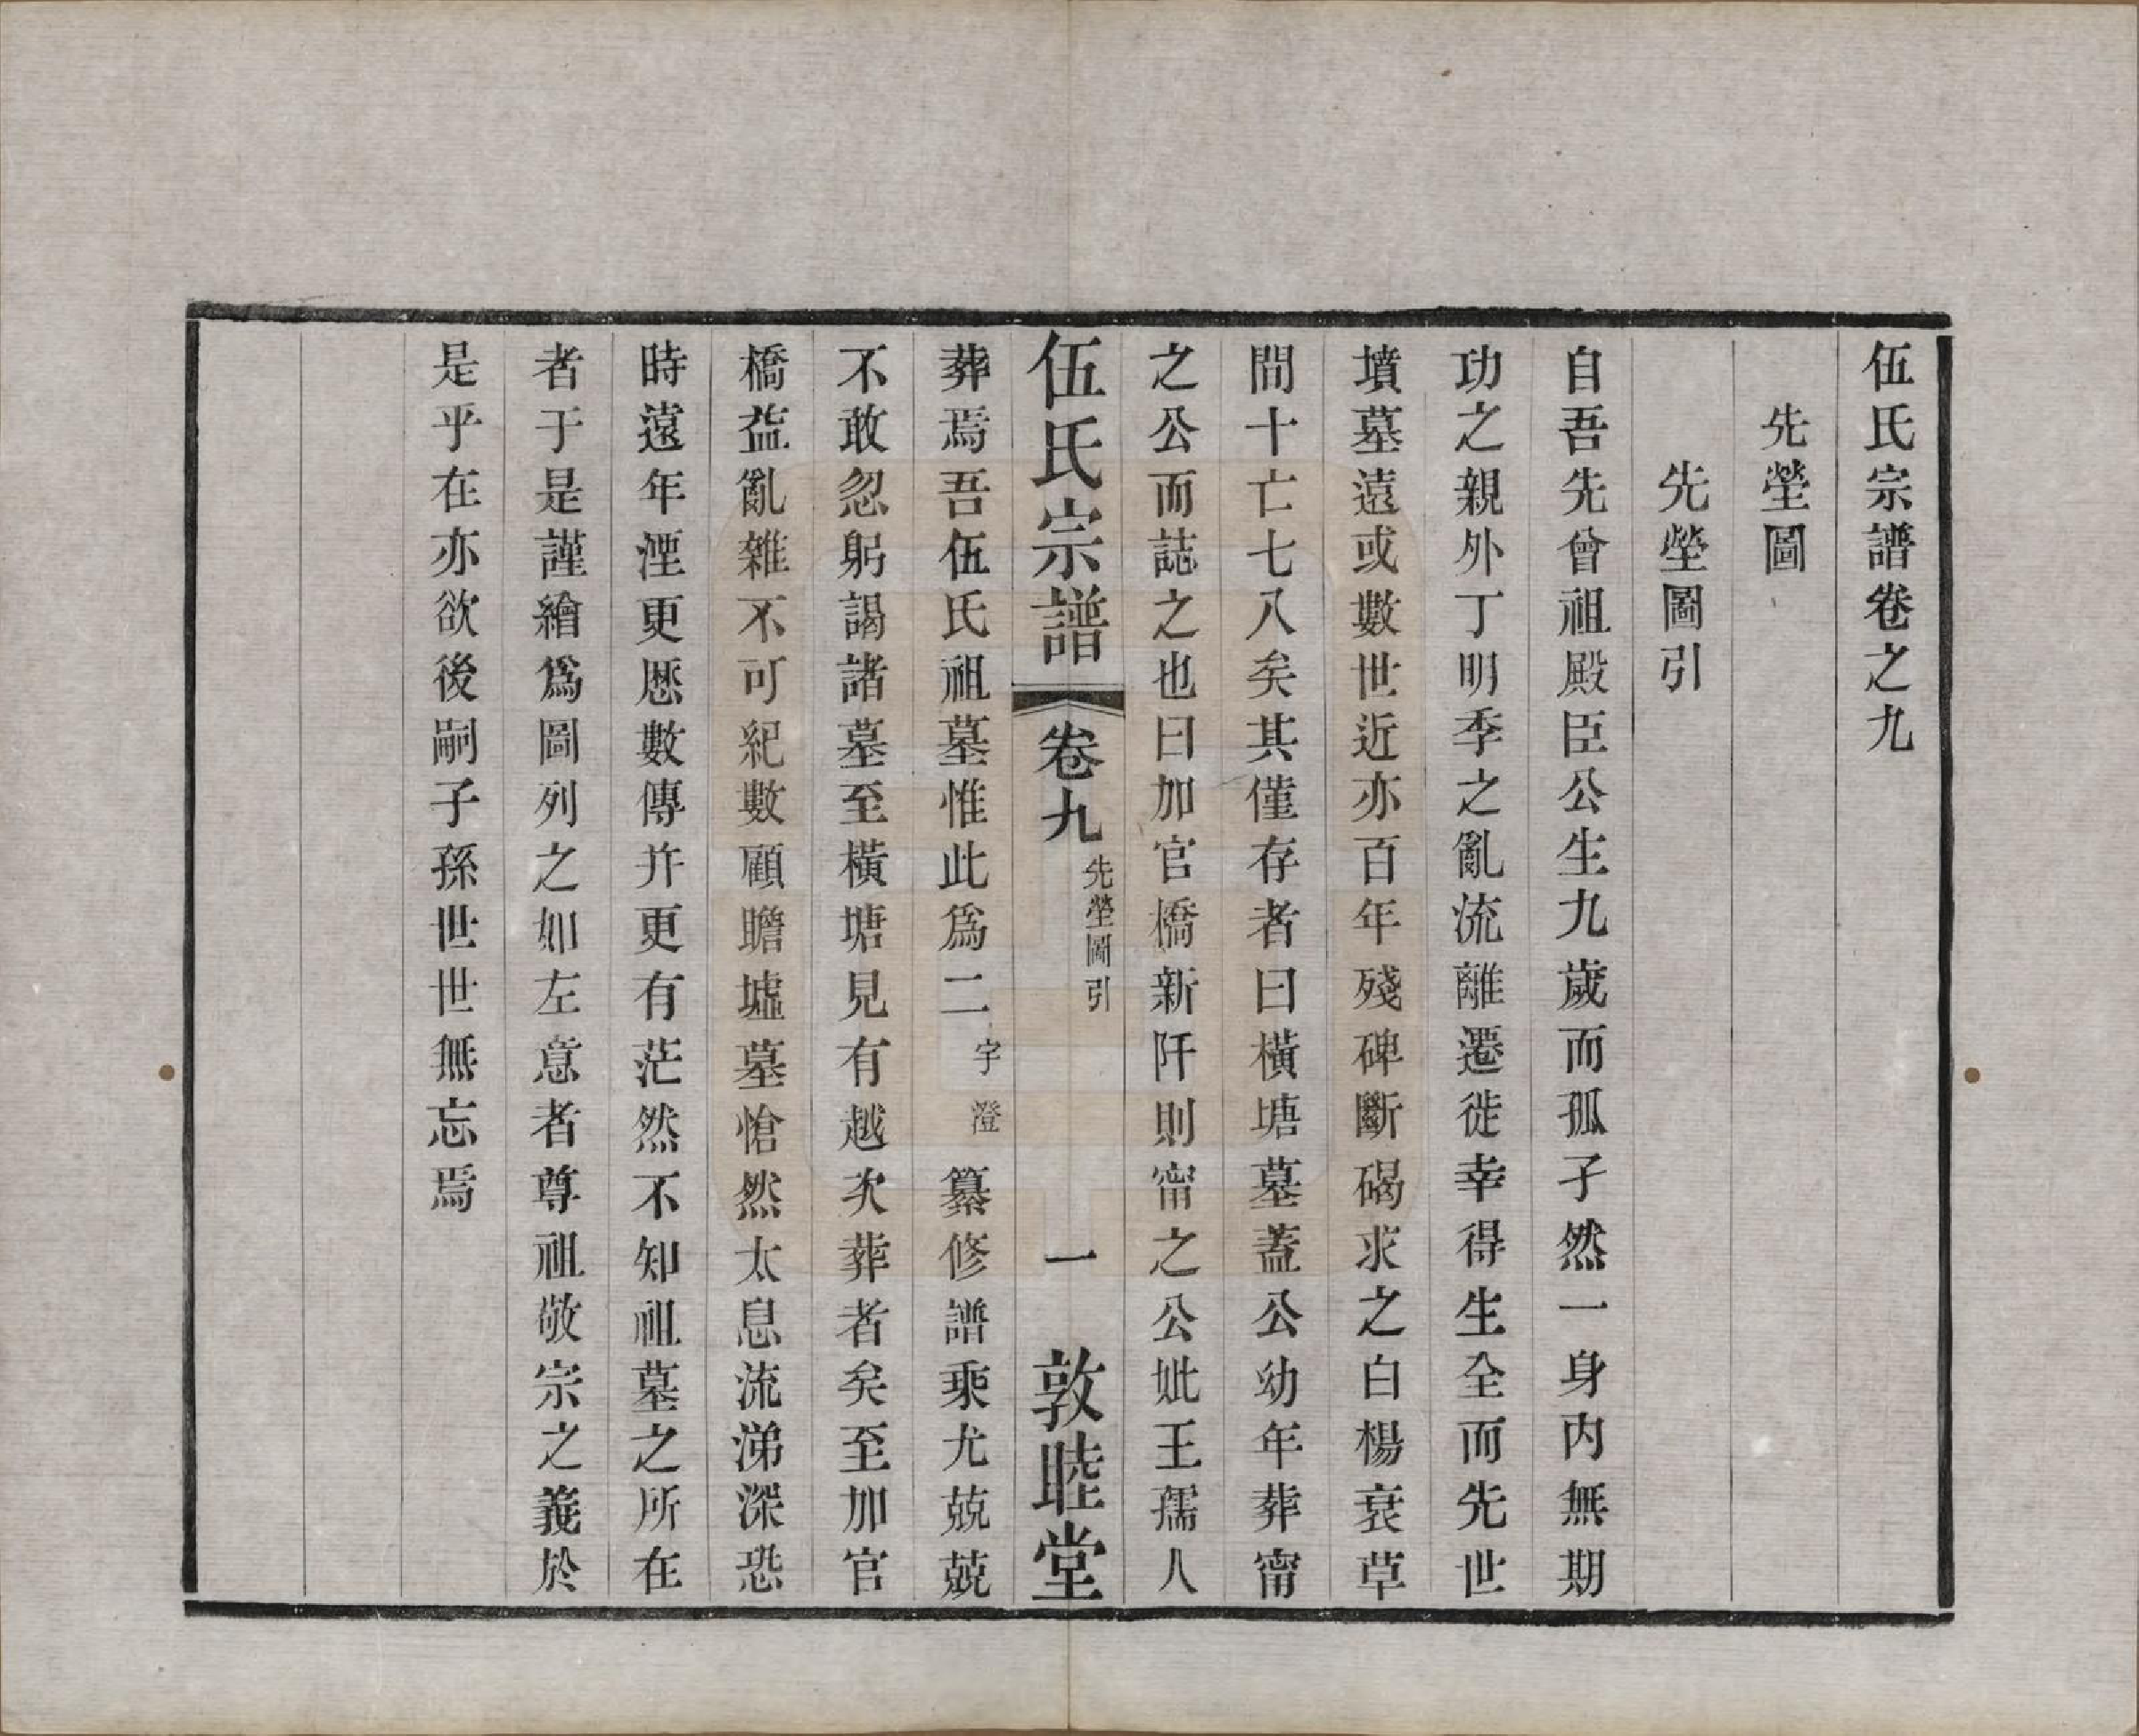 伍氏宗譜卷之九
先塋圖
先塋圖引
自吾先曾祖殿臣公生九歲而孤孑然一身內無期
功之親外丁明季之亂流離遷徙幸得生全而先世
墳墓遠或數世近亦百年殘碑斷碣求之白楊衰草
間十亡七八矣其僅存者曰橫塘墓蓋公幼年葬甯
之公而誌之也曰加官橋新阡則甯之公妣王孺人
伍氏宗譜 卷九 先塋圖引 一 敦睦堂
葬焉吾伍氏祖墓惟此爲二字澄纂修譜乘尤兢兢
不敢忽躬謁諸墓至橫塘見有越次葬者矣至加官
橋益亂雜不可紀數顧瞻墟墓愴然太息流涕深恐
時遠年湮更歷數傳并更有茫然不知祖墓之所在
者于是謹繪爲圖列之如左意者尊祖敬宗之義於
是乎在亦欲後嗣子孫世世無忘焉